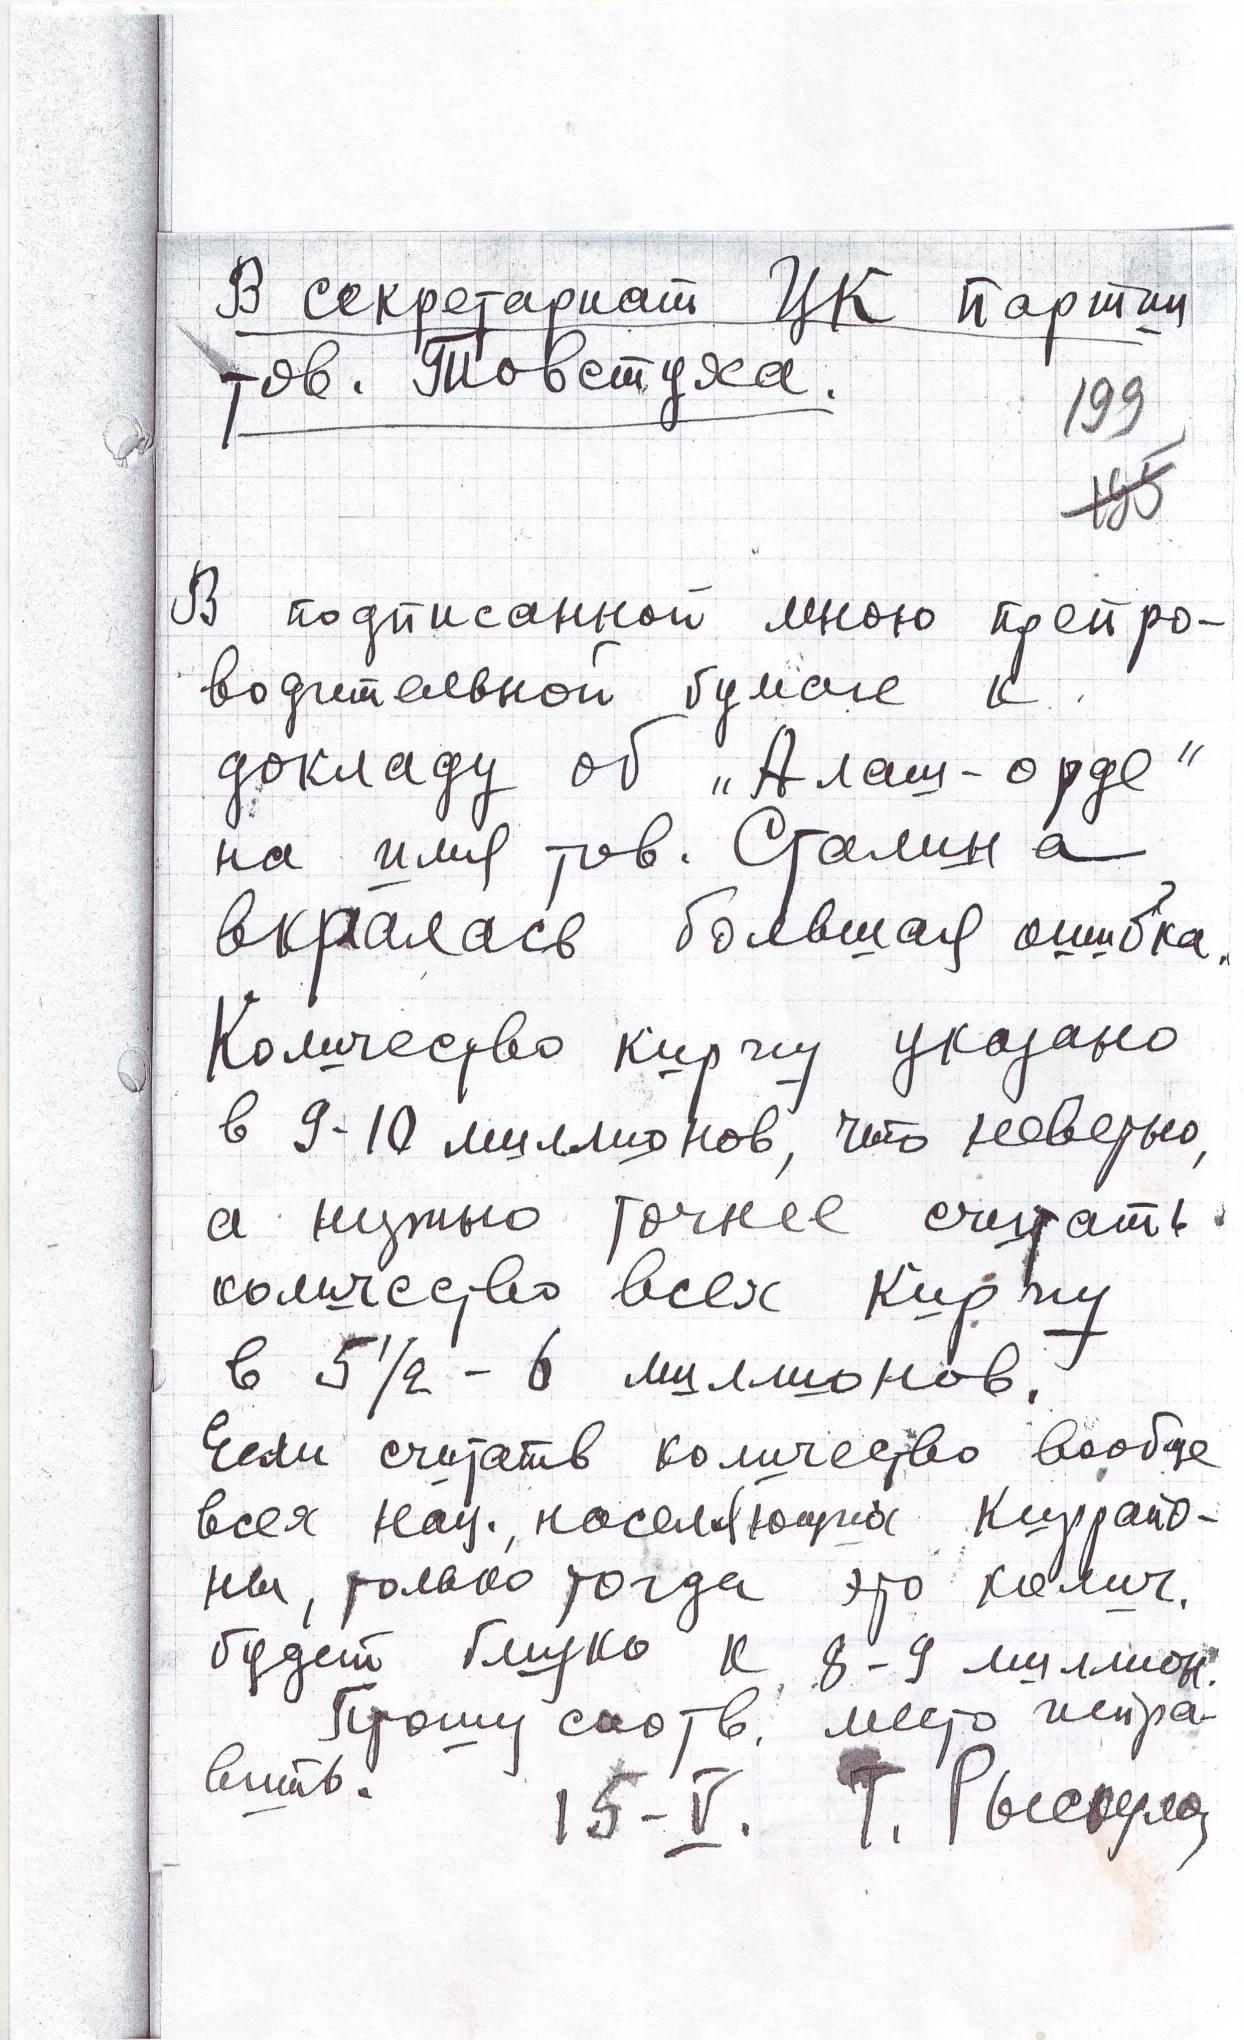 В секретариат ЦК партии
тов. Товстуха.
199
195
В подписанной мною препро-
водительной бумаге к
докладу об „Алаш-орде"
на имя тов. Сталина
вкралась большая ошибка.
Количество киргиз указано
в 9-10 миллионов, что неверно,
а нужно точнее считать
количество всех Киргиз
в 5 1/2 - 6 миллионов.
Если считать количество вообще
всех нац., населяющих Киррайо-
ны, только тогда это колич.
будет близко к 8-9 миллион.
Прошу соотв. место испра-
вить.
15-V. Т. Рыскулов